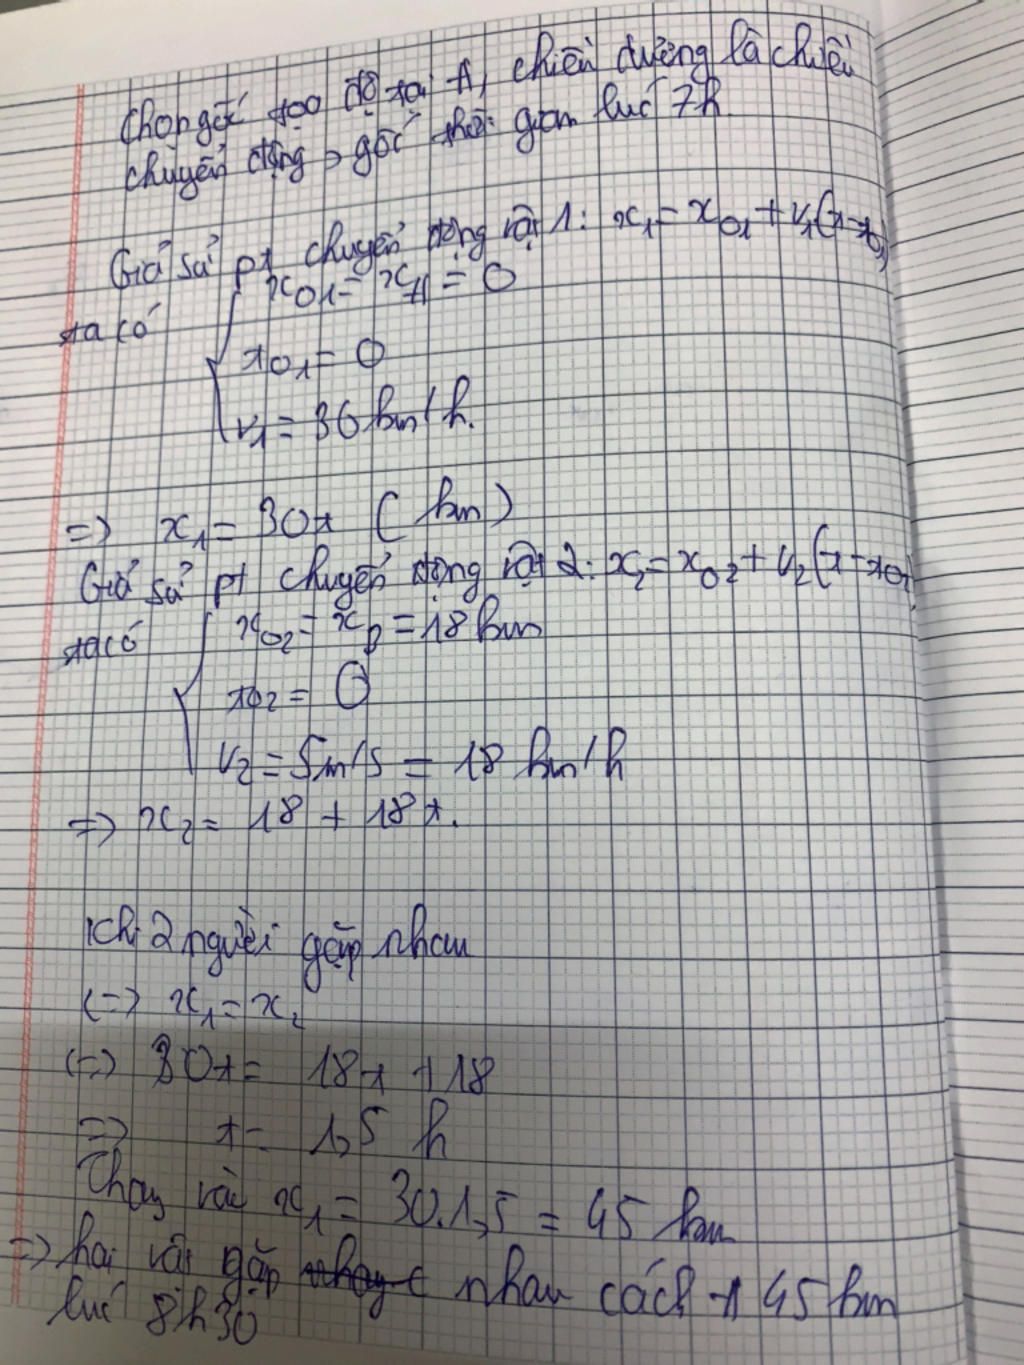 Chọn gốc toạ độ tại A, chiều dương là chiều
chuyển động, gốc thời gian lúc 7h.
Giả sử pt chuyển động vật 1: x₁ = x₀₁ + v₁(t-t₀₁)
ta có { x₀₁ = x_A = 0
t₀₁ = 0
v₁ = 30 km/h.
=> x₁ = 30t (km)
Giả sử pt chuyển động vật 2: x₂ = x₀₂ + v₂(t-t₀₂)
ta có { x₀₂ = x_B = 18 km
t₀₂ = 0
v₂ = 5m/s = 18 km/h
=> x₂ = 18 + 18t.
Khi 2 người gặp nhau
(=> x₁ = x₂
(=> 30t = 18t + 18
=> t = 1,5 h
Thay vào x₁ = 30.1,5 = 45 km
=> hai vật gặp nhau cách A 45 km
lúc 8h30